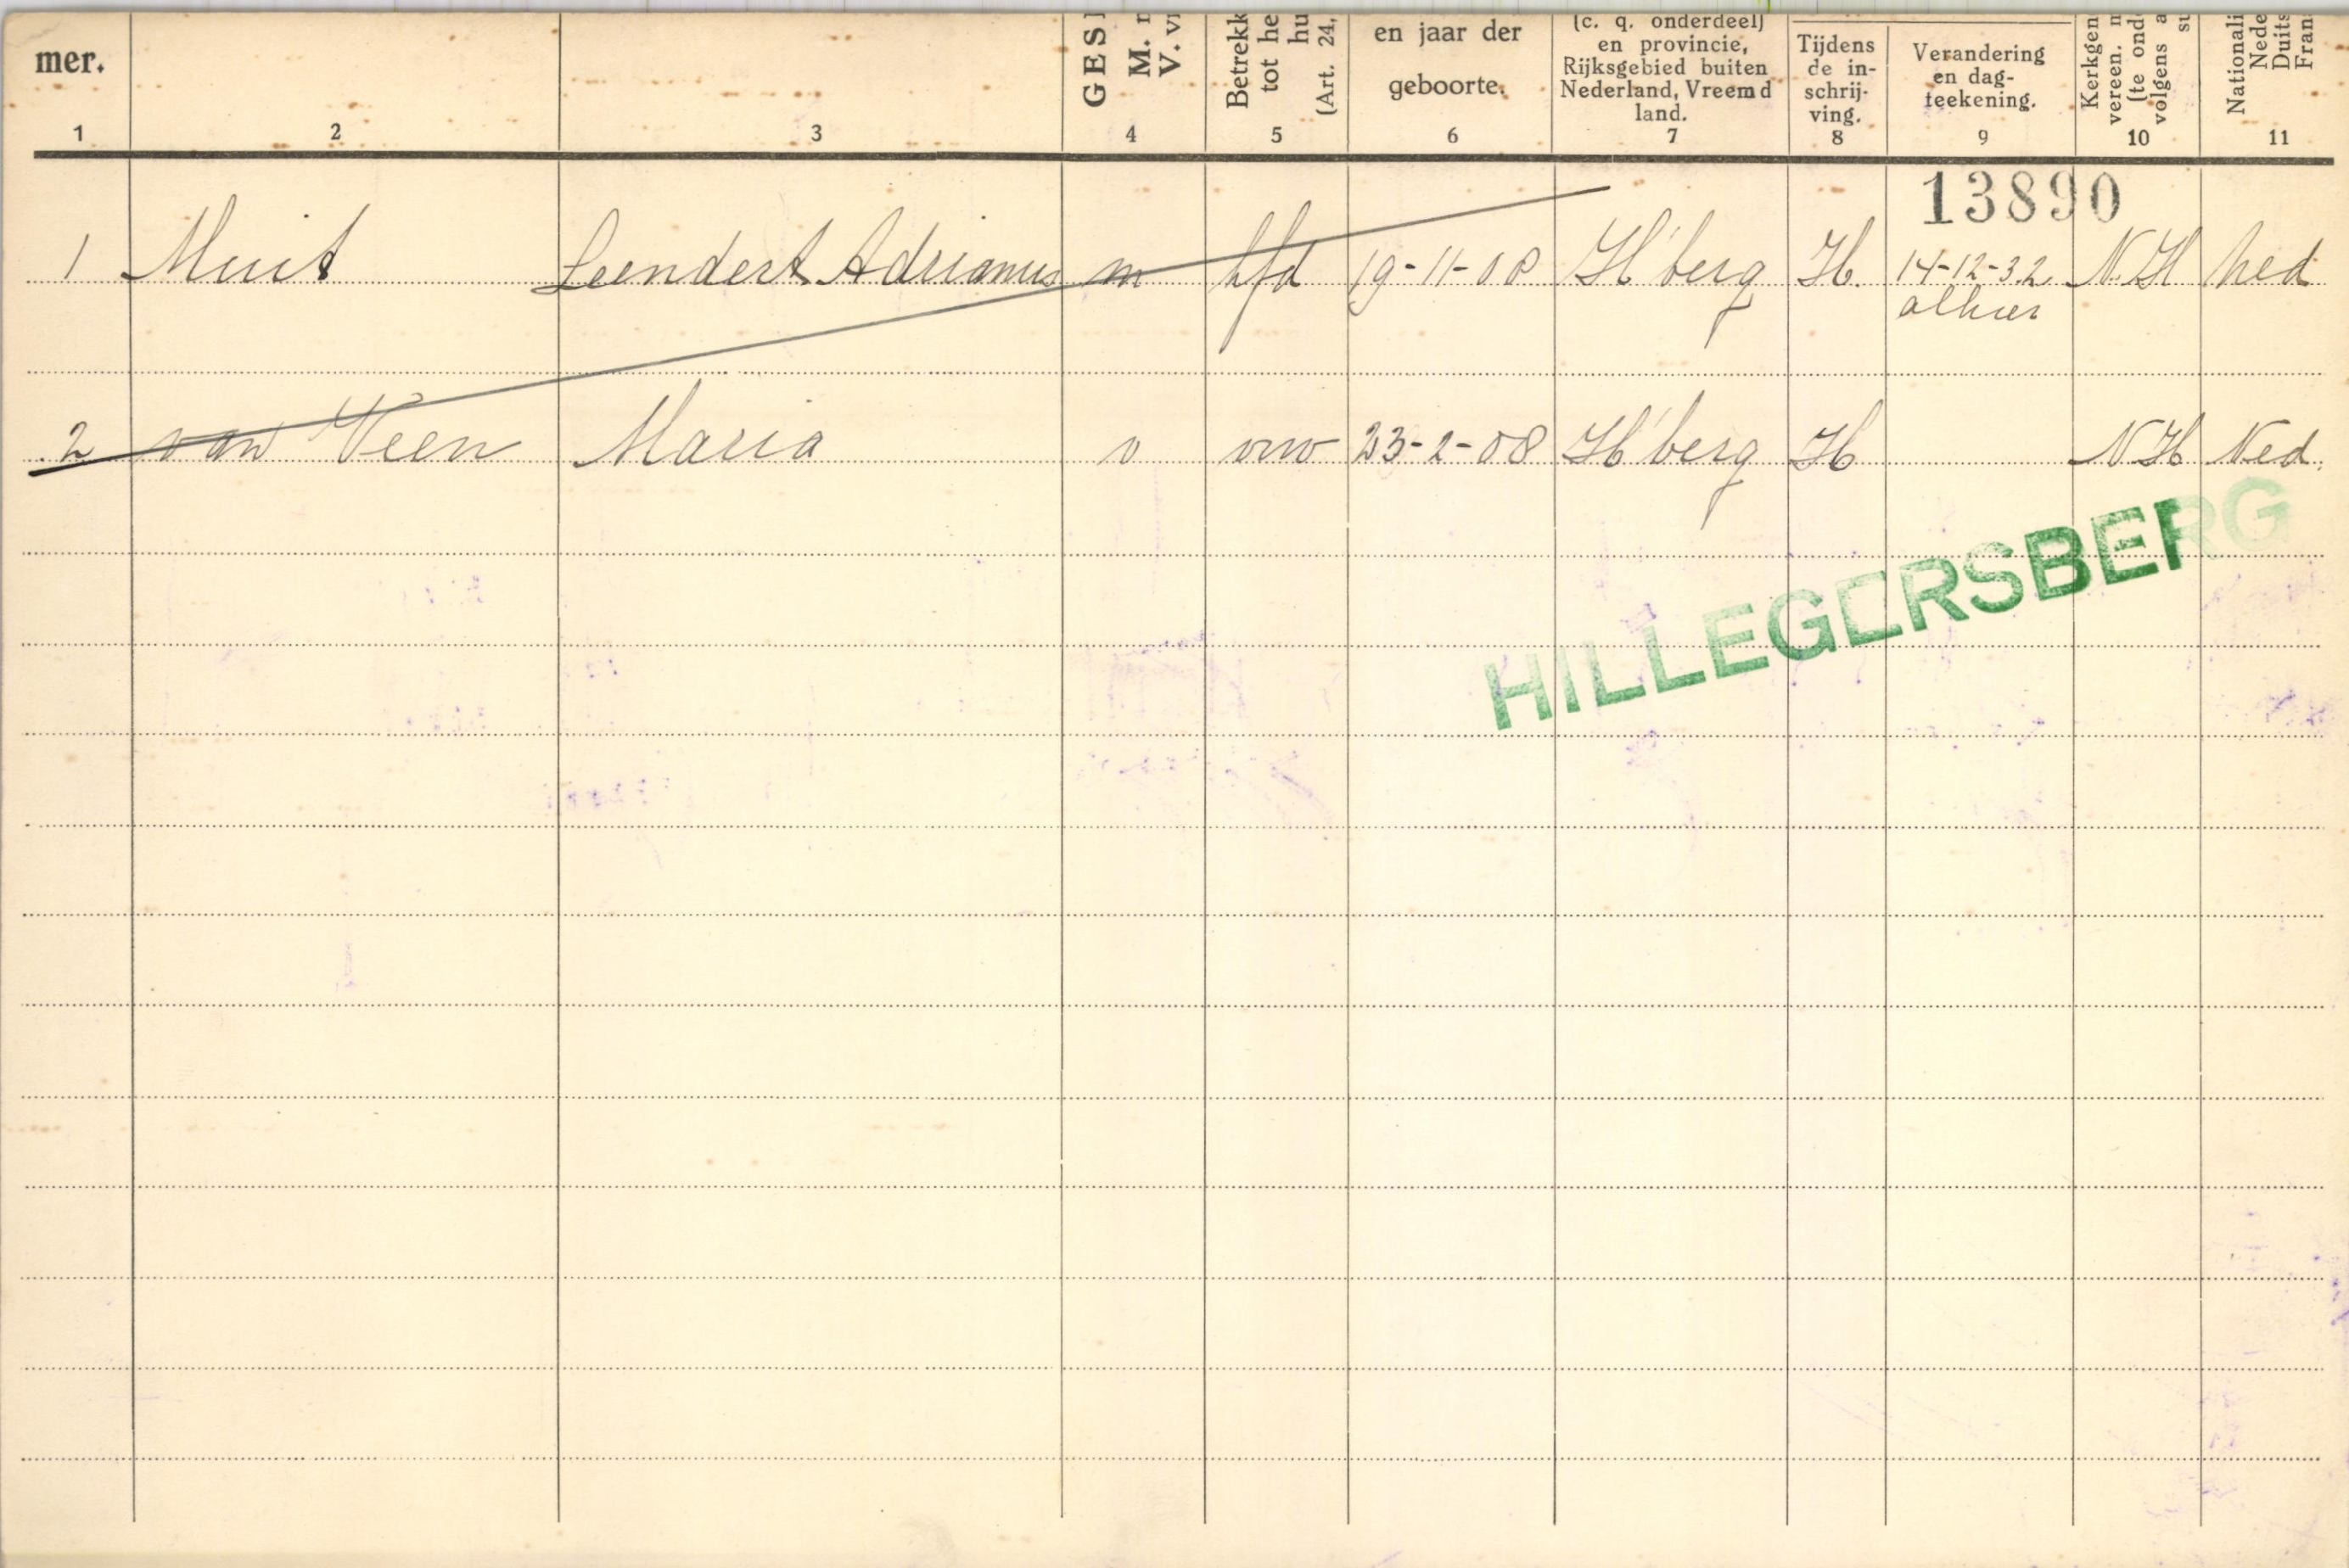 mer.
GESL
M. m
V. vr
Betrekk
tot he
hu
(Art. 24,
en jaar der
geboorte.
(c. q. onderdeel)
en provincie,
Rijksgebied buiten
Nederland, Vreemd
land.
Tijdens
de in-
schrij-
ving.
Verandering
en dag-
teekening.
Kerkgen
vereen. n
(te ond
volgens a
su
Nationali
Nede
Duits
Frans
1 2 3 4 5 6 7 8 9 10 11
13890
1 Muit Leendert Adrianus m hfd 19-11-08 H'berg H. 14-12-32 N.H ned
alhier
2 van Veen Maria v vrw 23-2-08 H'berg H NH Ned.
HILLEGERSBERG